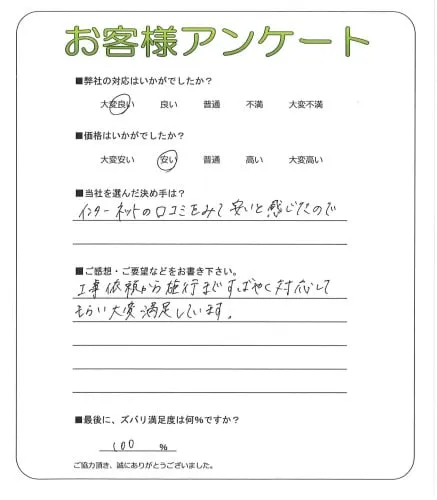 お客様アンケート
■弊社の対応はいかがでしたか？
大変良い 良い 普通 不満 大変不満
■価格はいかがでしたか？
大変安い 安い 普通 高い 大変高い
■当社を選んだ決め手は？
インターネットの口コミをみて安いと感じたので
■ご感想・ご要望などをお書き下さい。
工事依頼から施行まですばやく対応して
もらい大変満足しています。
■最後に、ズバリ満足度は何％ですか？
100 ％
ご協力頂き、誠にありがとうございました。